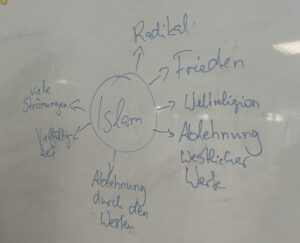 Radikal
Frieden
Weltreligion
Ablehnung
westlicher
Werte
Ablehnung
durch den
Westen
Vielfältig-
keit
viele
Strömungen
Islam